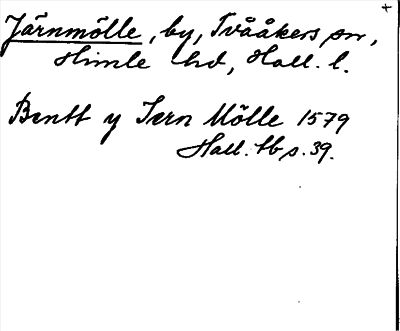 +
Järnmölle, by, Tvååkers sn,
Himle hd, Hall. l.
Bentt y Iern Mölle 1579
Hall. tb s. 39.